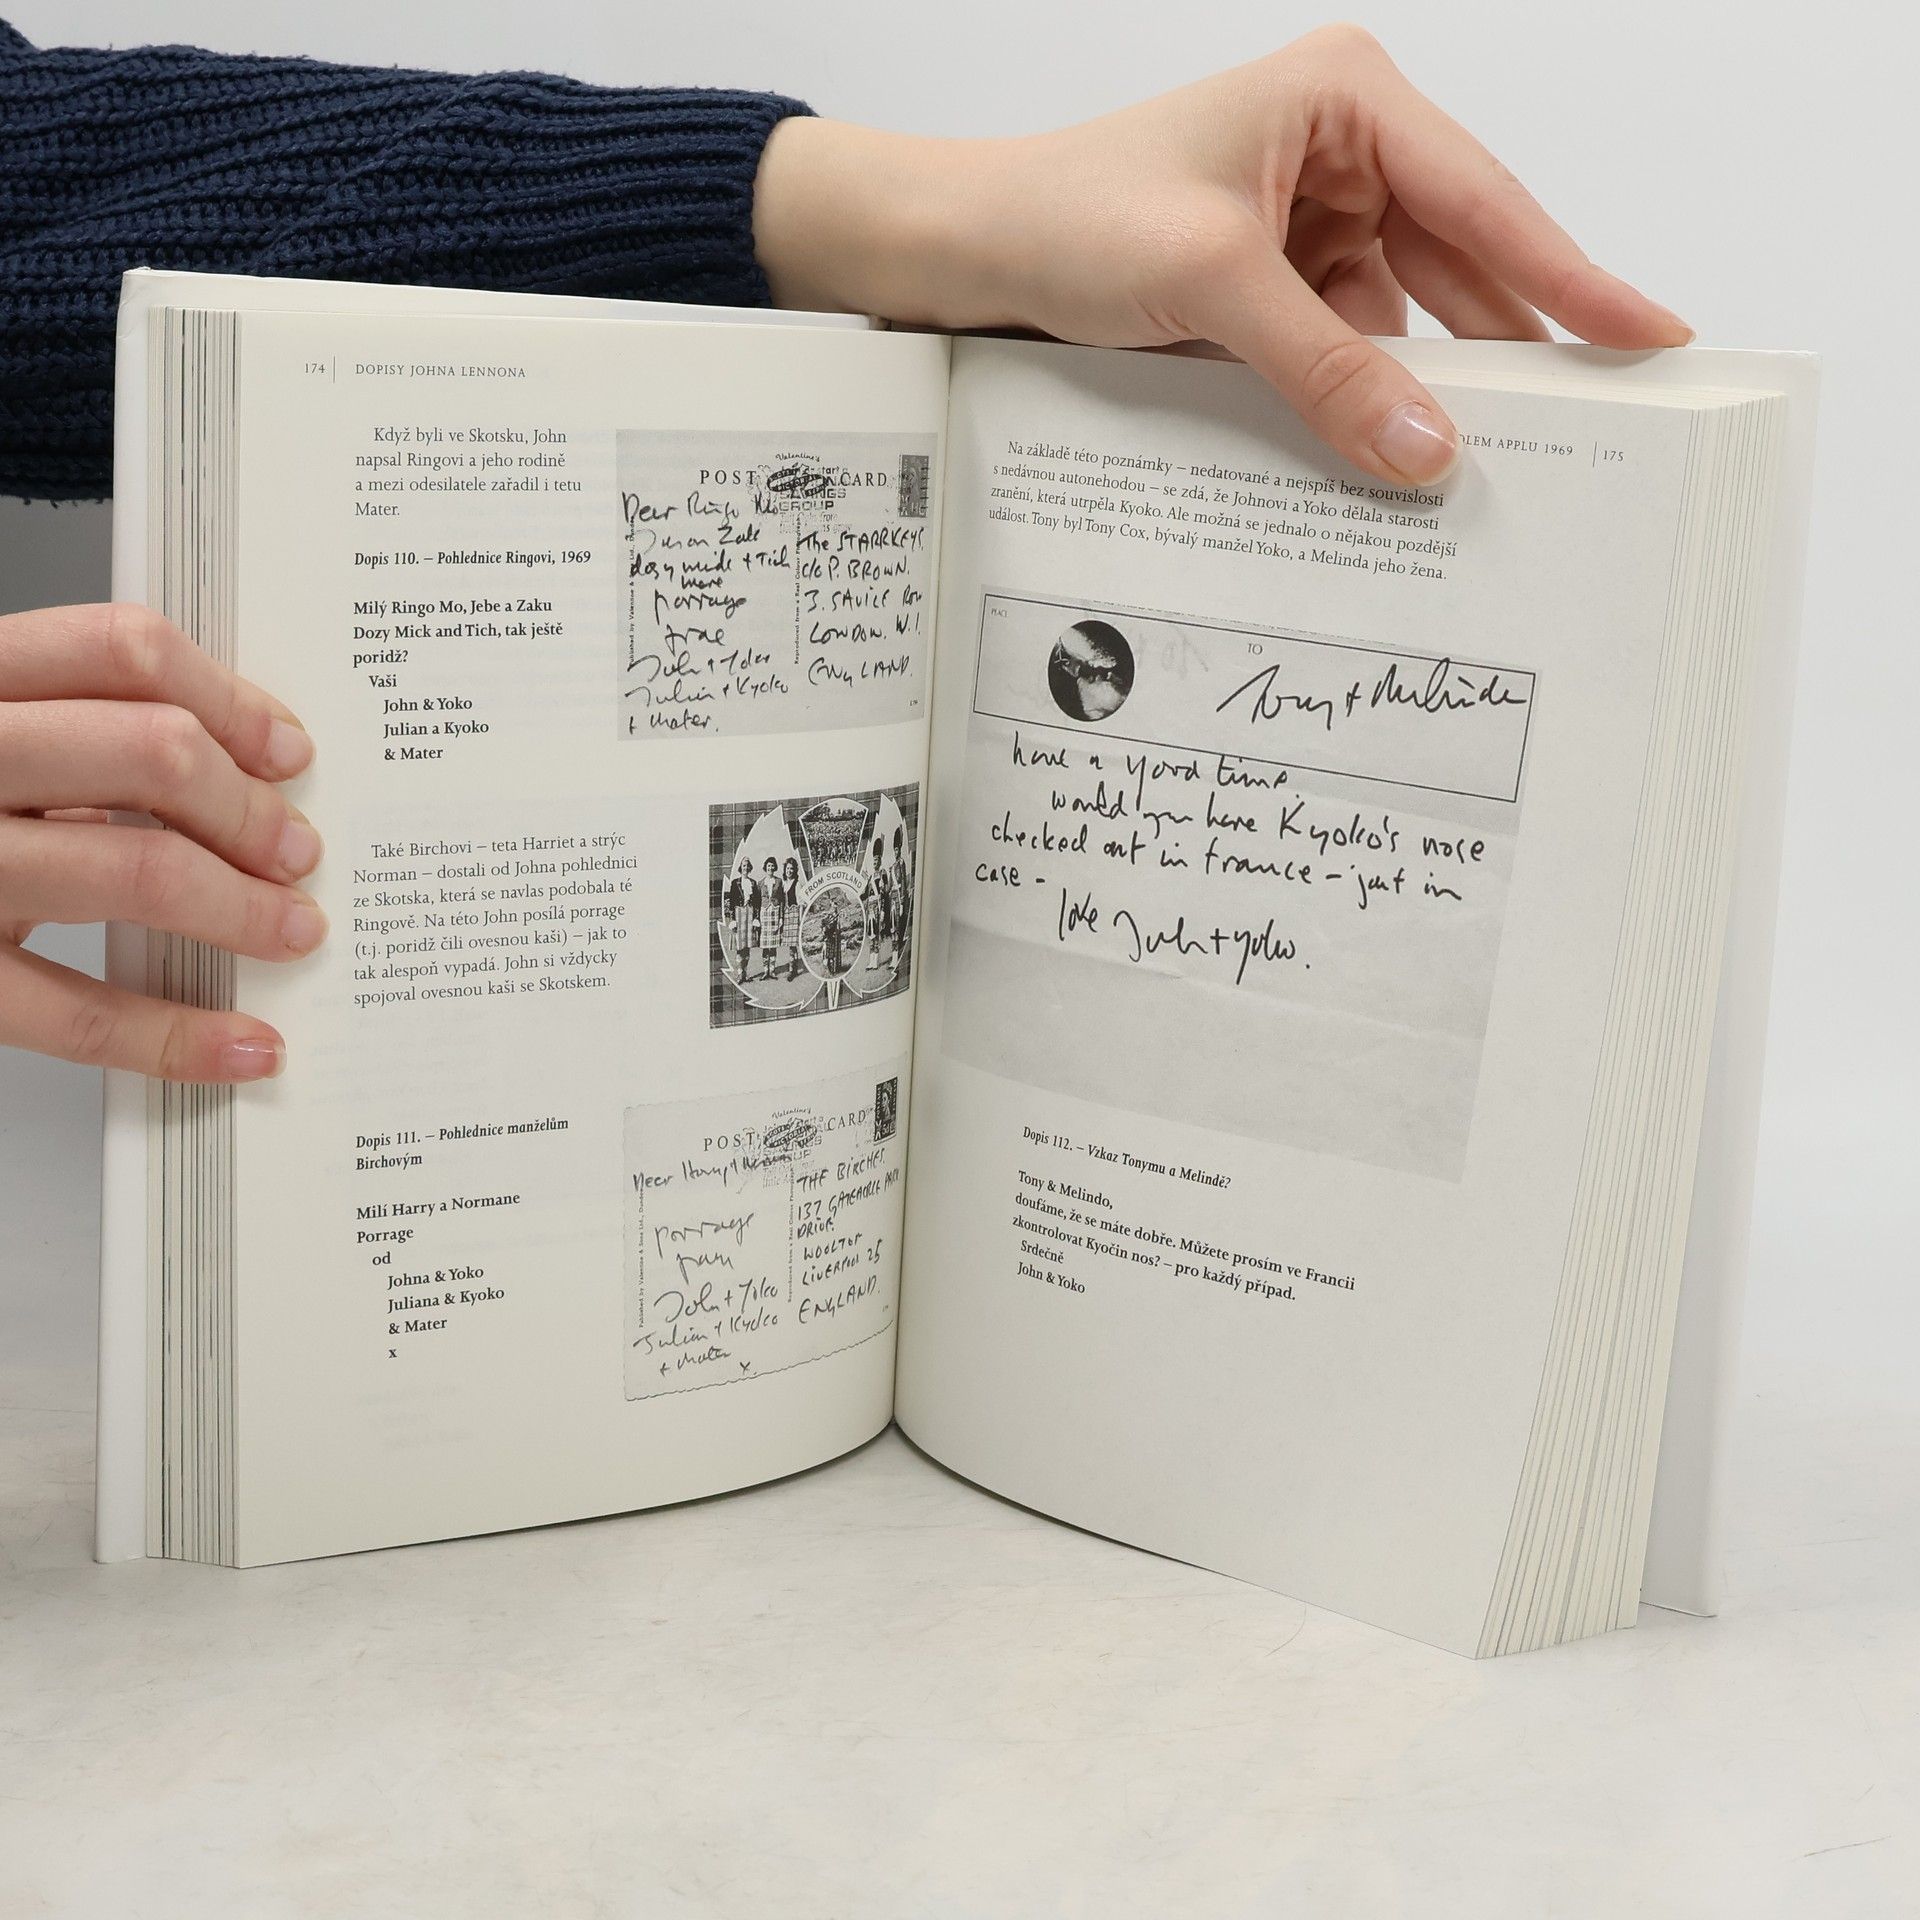 174 | DOPISY JOHNA LENNONA
Když byli ve Skotsku, John
napsal Ringovi a jeho rodině
a mezi odesilatele zařadil i tetu
Mater.
Dopis 110. – Pohlednice Ringovi, 1969
Milý Ringo Mo, Jebe a Zaku
Dozy Mick and Tich, tak ještě
poridž?
Vaši
John & Yoko
Julian a Kyoko
& Mater
POST CARD
Dear Ringo Mo
Zak
dozy mick + Tich
more
porrage
John + Yoko
Julian + Kyoko
+ Mater.
The STARRKEYS.
c/o P. BROWN.
3. SAVILE Row
LONDON. W.1.
ENGLAND.
Také Birchovi – teta Harriet a strýc
Norman – dostali od Johna pohlednici
ze Skotska, která se navlas podobala té
Ringově. Na této John posílá porrage
(t.j. poridž čili ovesnou kaši) – jak to
tak alespoň vypadá. John si vždycky
spojoval ovesnou kaši se Skotskem.
FROM SCOTLAND
Dopis 111. – Pohlednice manželům
Birchovým
Milí Harry a Normane
Porrage
od
Johna & Yoko
Juliana & Kyoko
& Mater
x
POST CARD
Dear Harry +
porrage
from
John + Yoko
Julian + Kyoko
+ Mater
x
THE BIRCHES.
137 GATEACRE PARK
DRIVE
WOOLTON
LIVERPOOL 25
ENGLAND.
OLEM APPLU 1969 | 175
Na základě této poznámky – nedatované a nejspíš bez souvislosti
s nedávnou autonehodou – se zdá, že Johnovi a Yoko dělala starosti
zranění, která utrpěla Kyoko. Ale možná se jednalo o nějakou pozdější
událost. Tony byl Tony Cox, bývalý manžel Yoko, a Melinda jeho žena.
PEACE
TO
Tony + Melinda
have a good time.
would you have Kyoko's nose
checked out in france – just in
case –
love John + yoko.
Dopis 112. – Vzkaz Tonymu a Melindě?
Tony & Melindo,
doufáme, že se máte dobře. Můžete prosím ve Francii
zkontrolovat Kyočin nos? – pro každý případ.
Srdečně
John & Yoko